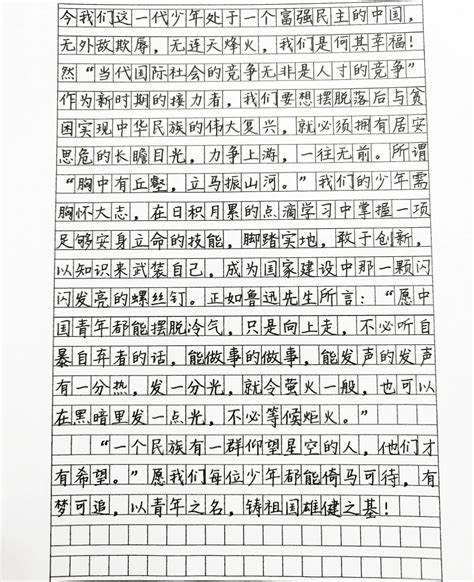 今我们这一代少年处于一个富强民主的中国，
无外敌欺辱，无连天烽火，我们是何其幸福！
然“当代国际社会的竞争无非是人才的竞争”
作为新时期的接力者，我们要想摆脱落后与贫
困实现中华民族的伟大复兴，就必须拥有居安
思危的长瞻目光，力争上游，一往无前。所谓
“胸中有丘壑，立马振山河。”我们的少年需
胸怀大志，在日积月累的点滴学习中掌握一项
足够安身立命的技能，脚踏实地，敢于创新，
以知识来武装自己，成为国家建设中那一颗闪
闪发亮的螺丝钉。正如鲁迅先生所言：“愿中
国青年都能摆脱冷气，只是向上走，不必听自
暴自弃者的话，能做事的做事，能发声的发声
有一分热，发一分光，就令萤火一般，也可以
在黑暗里发一点光，不必等候炬火。”
“一个民族有一群仰望星空的人，他们才
有希望。”愿我们每位少年都能倚马可待，有
梦可追，以青年之名，铸祖国雄健之基！